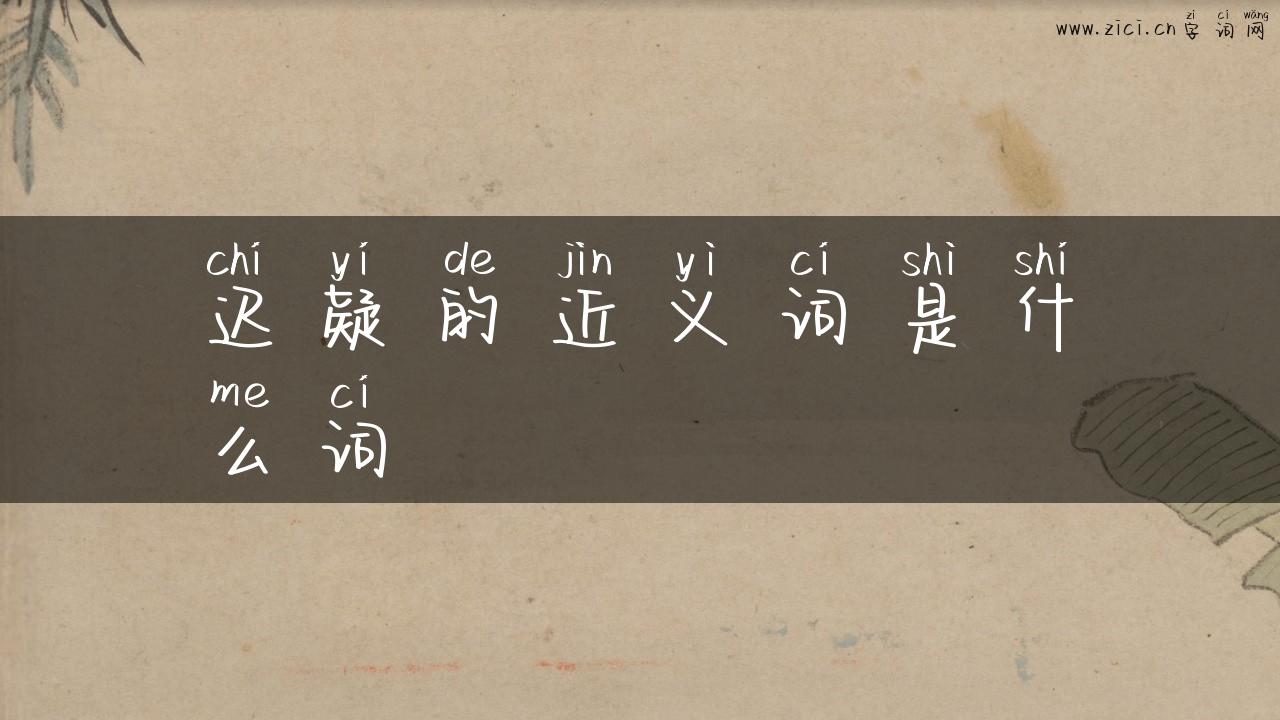 zi ci wǎng
www.zici.cn 字 词 网
chí yí de jìn yì cí shì shí
迟 疑 的 近 义 词 是 什
me cí
么 词